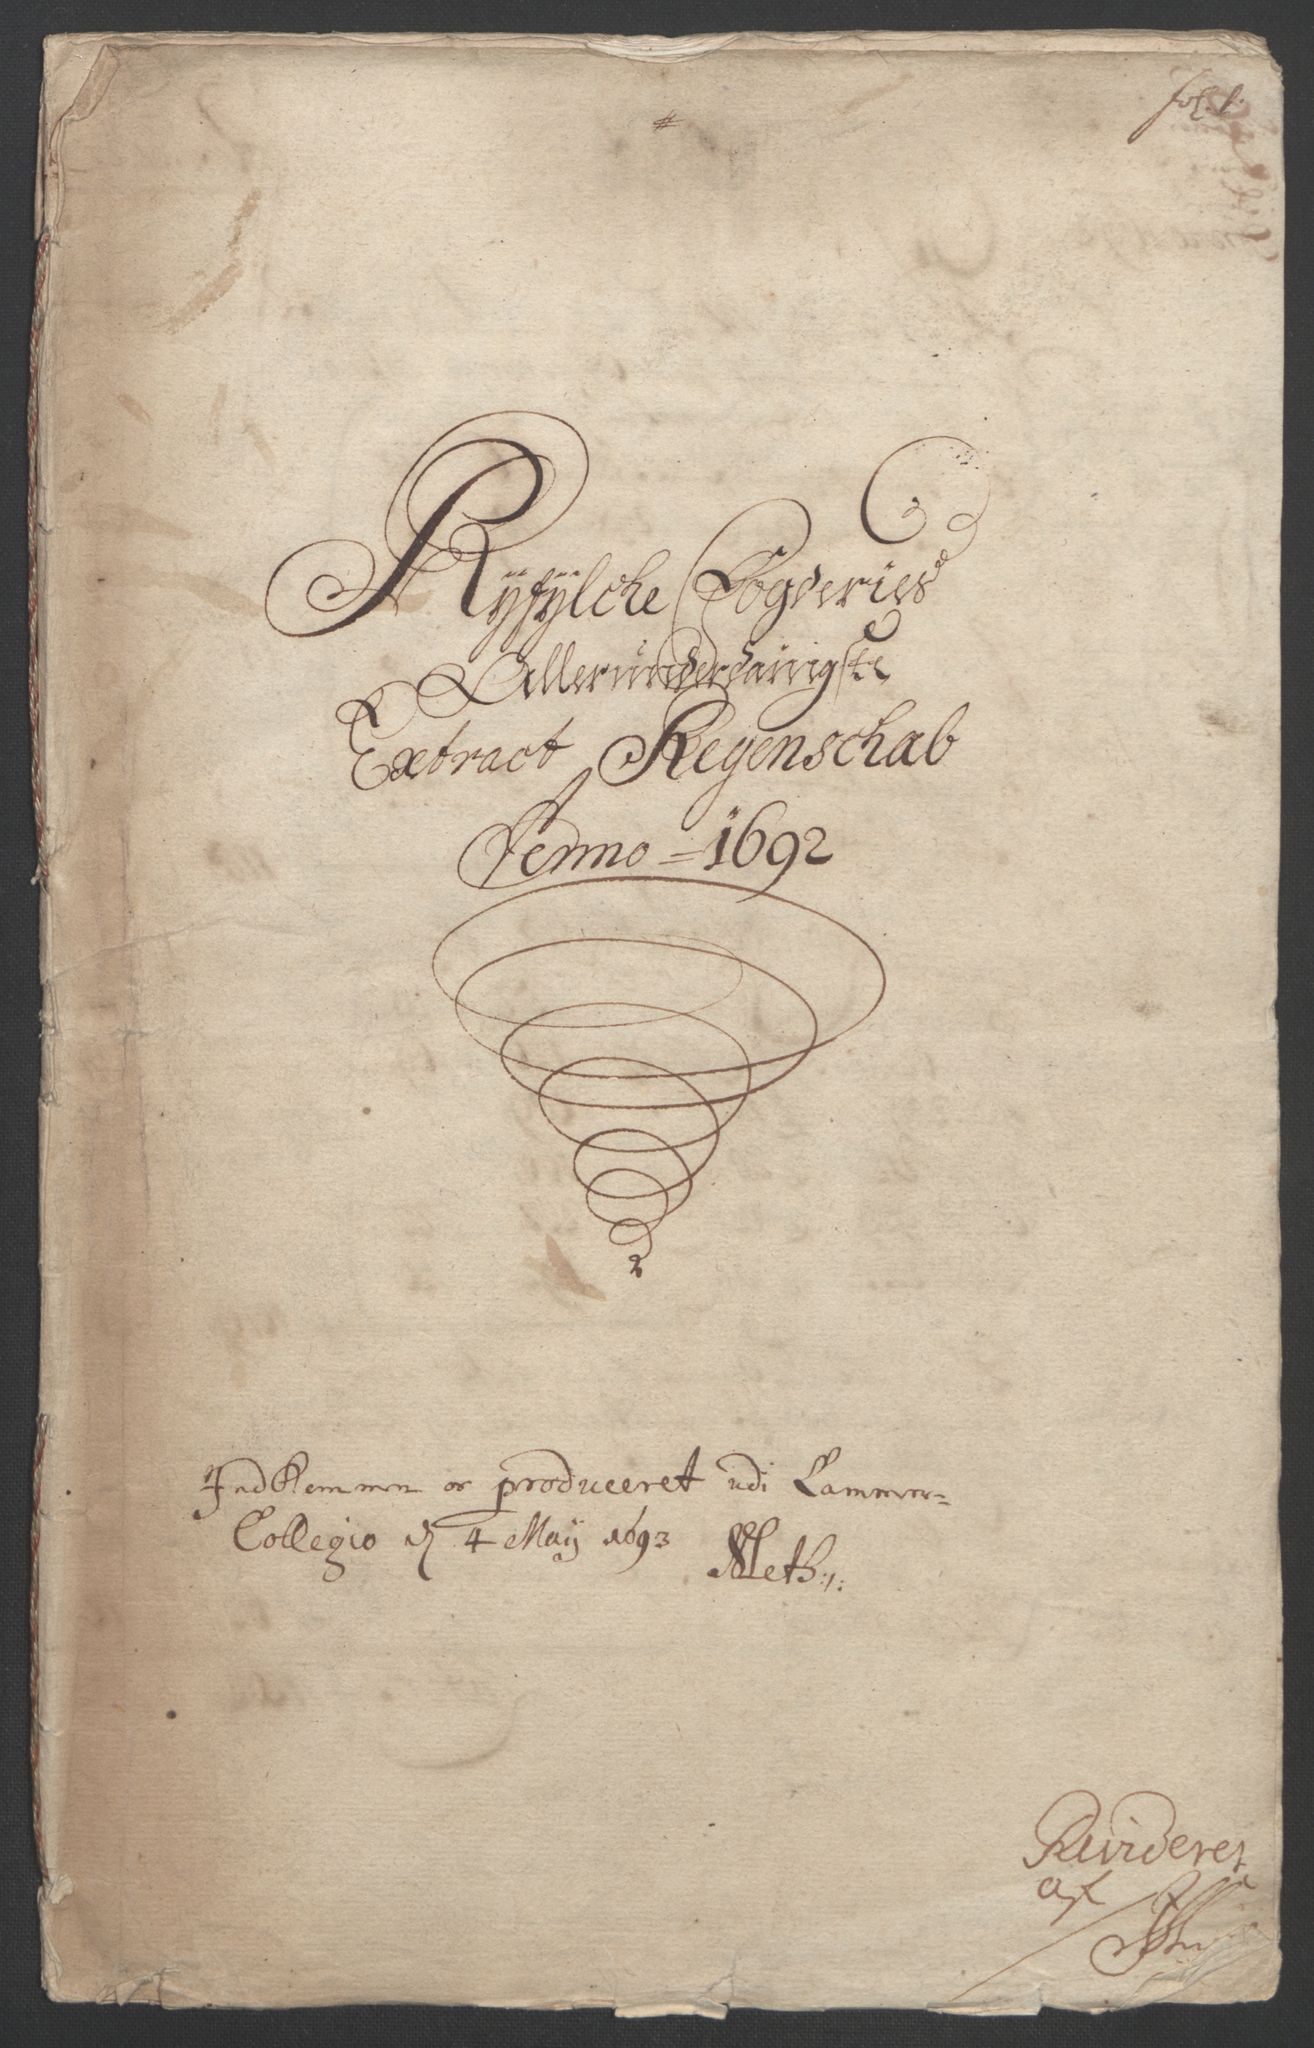 fol. 1.
Ryfylche Fogderies
Allerunderdanigste
Extract Regenschab
Anno = 1692
Indkommen oc produceret udi Cammer-
Collegio d 4 May 1693
Revideret
af